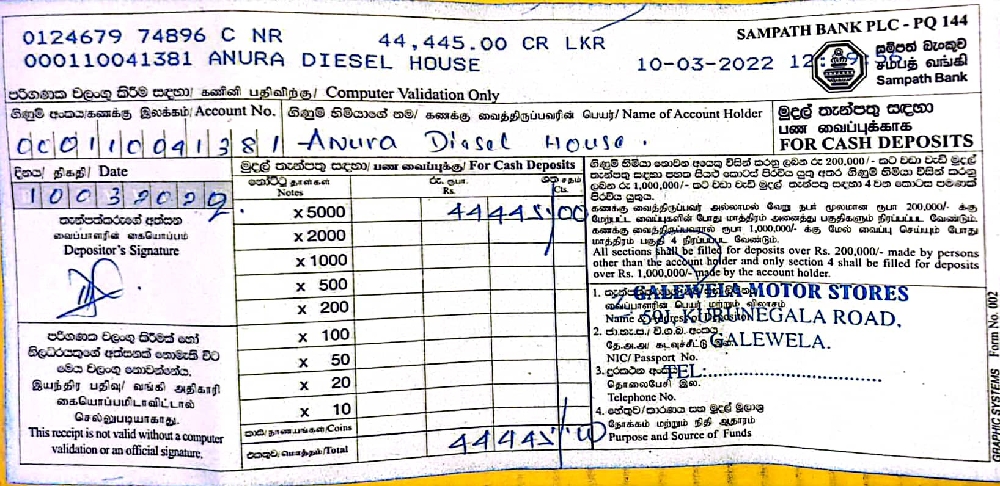 SAMPATH BANK PLC - PQ 144
0124679 74896 C NR 44,445.00 CR LKR
000110041381 ANURA DIESEL HOUSE 10-03-2022
සම්පත් බැංකුව
சம்பத் வங்கி
Sampath Bank
පරිගණක වලංගු කිරීම සඳහා/ கணினி பதிவிற்கு/ Computer Validation Only
ගිණුම් අංකය/கணக்கு இலக்கம்/ Account No.
000110041381
ගිණුම් හිමියාගේ නම/ கணக்கு வைத்திருப்பவரின் பெயர்/ Name of Account Holder
Anura Diesel House.
මුදල් තැන්පතු සඳහා
பண வைப்புக்காக
FOR CASH DEPOSITS
දිනය/ திகதி/ Date
10032022
තැන්පත්කරුගේ අත්සන
வைப்பாளரின் கையொப்பம்
Depositor's Signature
පරිගණක වලංගු කිරීමක් හෝ
නිලධරයකුගේ අත්සනක් නොමැති විට
මෙය වලංගු නොවන්නේය.
இயந்திர பதிவு/ வங்கி அதிகாரி
கையொப்பமிடாவிட்டால்
செல்லுபடியாகாது.
This receipt is not valid without a computer
validation or an official signature.
මුදල් තැන්පතු සඳහා/ பண வைப்புக்கு/ For Cash Deposits
නෝට්ටු தாள்கள் Notes
රු. ரூபா. Rs.
ශත சதம் Cts.
x 5000 44445.00
x 2000
x 1000
x 500
x 200
x 100
x 50
x 20
x 10
කාසි/நாணயங்கள்/Coins
එකතුව/மொத்தம்/Total 44445.00
ගිණුම් හිමියා නොවන අයෙකු විසින් කරනු ලබන රු 200,000/- කට වඩා වැඩි මුදල්
තැන්පතු සඳහා පහත සියළු කොටස් පිරවිය යුතු අතර ගිණුම් හිමියා විසින් කරනු
ලබන රු 1,000,000/- කට වැඩි මුදල් තැන්පතු සඳහා 4 වන කොටස පමණක්
පිරවිය යුතුය.
கணக்கு வைத்திருப்பவர் அல்லாமல் வேறு நபர் மூலமான ரூபா 200,000/- க்கு
மேற்பட்ட வைப்புகளின் போது மாத்திரம் அனைத்து பகுதிகளும் நிரப்பப்பட வேண்டும்.
கணக்கு வைத்திருப்பவரால் ரூபா 1,000,000/- க்கு மேல் வைப்பு செய்யும் போது
மாத்திரம் பகுதி 4 நிரப்பப்பட வேண்டும்.
All sections shall be filled for deposits over Rs. 200,000/- made by persons
other than the account holder and only section 4 shall be filled for deposits
over Rs. 1,000,000/- made by the account holder.
GALEWELA MOTOR STORES
59J, KURUNEGALA ROAD,
GALEWELA.
TEL:
1.
வைப்பாளரின் பெயர் மற்றும் விலாசம்
Name & Address of Depositor
2. ජා.හැ.ප./ වි.ග.බ. අංකය
தே.அ.அ/ கடவுச்சீட்டு இல.
NIC/ Passport No.
3. දුරකථන අංකය
தொலைபேசி இல.
Telephone No.
4. හේතුව/කාරණය සහ මුදල් මූලාශ්‍ර
நோக்கம் மற்றும் நிதி ஆதாரம்
Purpose and Source of Funds
GRAPHIC SYSTEMS Form No. 6/002